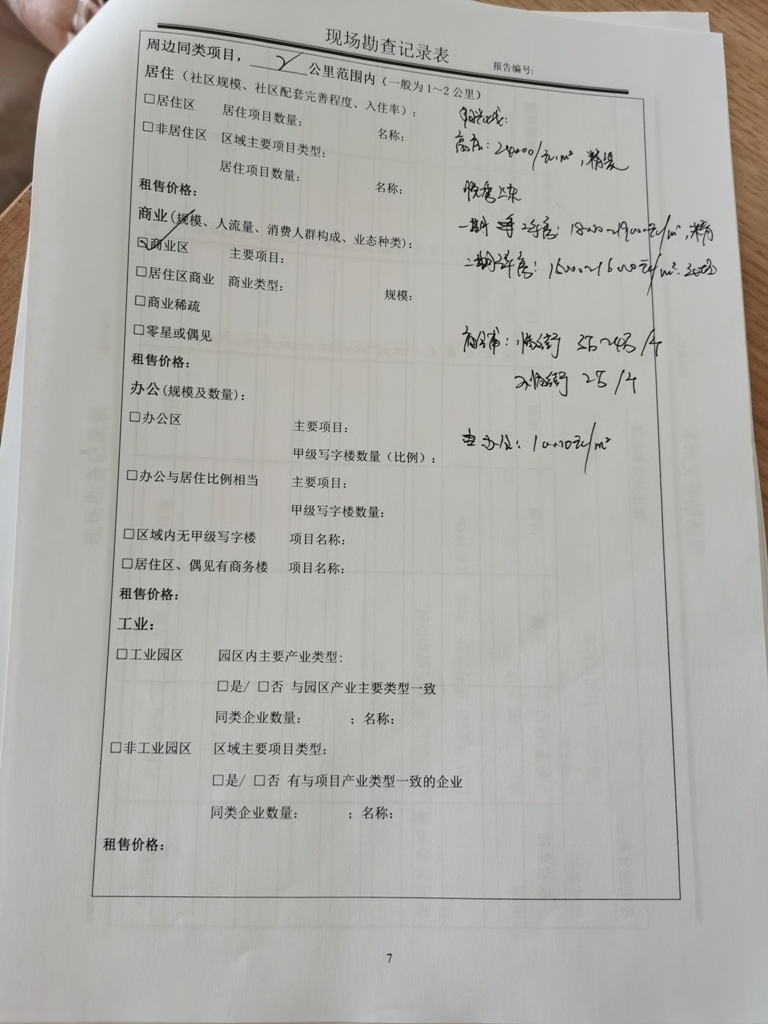 现场勘查记录表
报告编号:
周边同类项目，2公里范围内（一般为1～2公里）
居住（社区规模、社区配套完善程度、入住率）:
□居住区 居住项目数量: 名称:
□非居住区 区域主要项目类型:
高层: 24000/元/m², 精装
居住项目数量: 名称:
租售价格:
商业(规模、人流量、消费人群构成、业态种类):
一期 二手房: 18000~19000元/m², 精
☑商业区 主要项目:
二期 房: 15000~16000元/m².
□居住区商业 商业类型: 规模:
□商业稀疏
□零星或偶见
商铺: 临街 /个
租售价格:
不临街 25 /个
办公(规模及数量):
□办公区 主要项目:
办公: 10000元/m²
甲级写字楼数量(比例):
□办公与居住比例相当 主要项目:
甲级写字楼数量:
□区域内无甲级写字楼 项目名称:
□居住区、偶见有商务楼 项目名称:
租售价格:
工业:
□工业园区 园区内主要产业类型:
□是/ □否 与园区产业主要类型一致
同类企业数量: ；名称:
□非工业园区 区域主要项目类型:
□是/ □否 有与项目产业类型一致的企业
同类企业数量: ；名称:
租售价格:
7